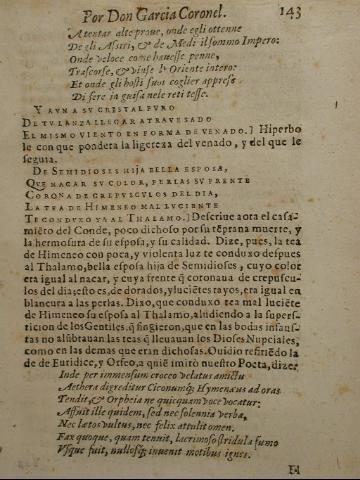 Por Don Garcia Coronel. 143
A tentar alte proue, onde egli ottenne
De gli Assiri, & de Medi il sommo Impero:
Onde veloce come hauesse penne,
Trascorse, & vinse l'Oriente intero:
Et onde gli hosti suoi coglier appress
Di fere in guisa nele reti tesse.
Y AVN A SV CRISTAL PVRO
DE TV LANZA LLEGAR ATRAVESADO
EL MISMO VIENTO EN FORMA DE VENADO.] Hiperbo
le con que pondera la ligereza del venado, y del que le
seguia.
DE SEMIDIOSES HIJA BELLA ESPOSA,
QVE NACAR SV COLOR, PERLAS SV FRENTE
CORONA DE CREPVSCVLOS DEL DIA,
LA TEA DE HIMENEO MAL LVCIENTE
TE CONDVXO YA AL THALAMO.] Descriue aora el casa-
miēto del Conde, poco dichoso por su tēprana muerte, y
la hermosura de su esposa, y su calidad. Dize, pues, la tea
de Himeneo con poca, y violenta luz te conduxo despues
al Thalamo, bella esposa hija de Semidioses, cuyo color
era igual al nacar, y cuya frente q̃ coronaua de crepuscu-
los del dia, esto es, de dorados, y luciētes rayos, era igual en
blancura a las perlas. Dixo, que conduxo tea mal luciēte
de Himeneo su esposa al Thalamo, aludiendo a la supers-
ticion de los Gentiles, q̃ fingieron, que en las bodas infaus-
tas no alūbrauan las teas q̃ lleuauan los Dioses Nupciales,
como en las demas que eran dichosas. Ouidio refiriēdo la
de de Euridice, y Orfeo, a quiē imitò nuestro Poeta, dize,
Inde per immensum croceo velatus amictu
Aethera digreditur Ciconumq; Hymenæus ad oras
Tendit, & Orpheia ne quicquam voce vocatur:
Affuit ille quidem, sed nec solennia verba,
Nec lætos vultus, nec felix attulit omen.
Fax quoque, quam tenuit, lacrimoso stridula fumo
Vsque fuit, nullosq; inuenit motibus ignes.